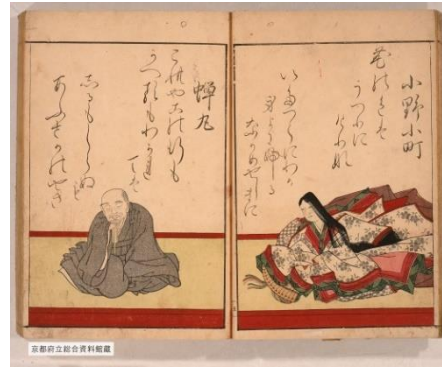 小野小町
花のいろは
うつりに
けりな
いたつらにわか
身よにふる
なかめせしまに
蟬丸
これやこの行も
かへるもわかれ
ては
しるもしらぬも
あふさかのせき
京都府立総合資料館蔵